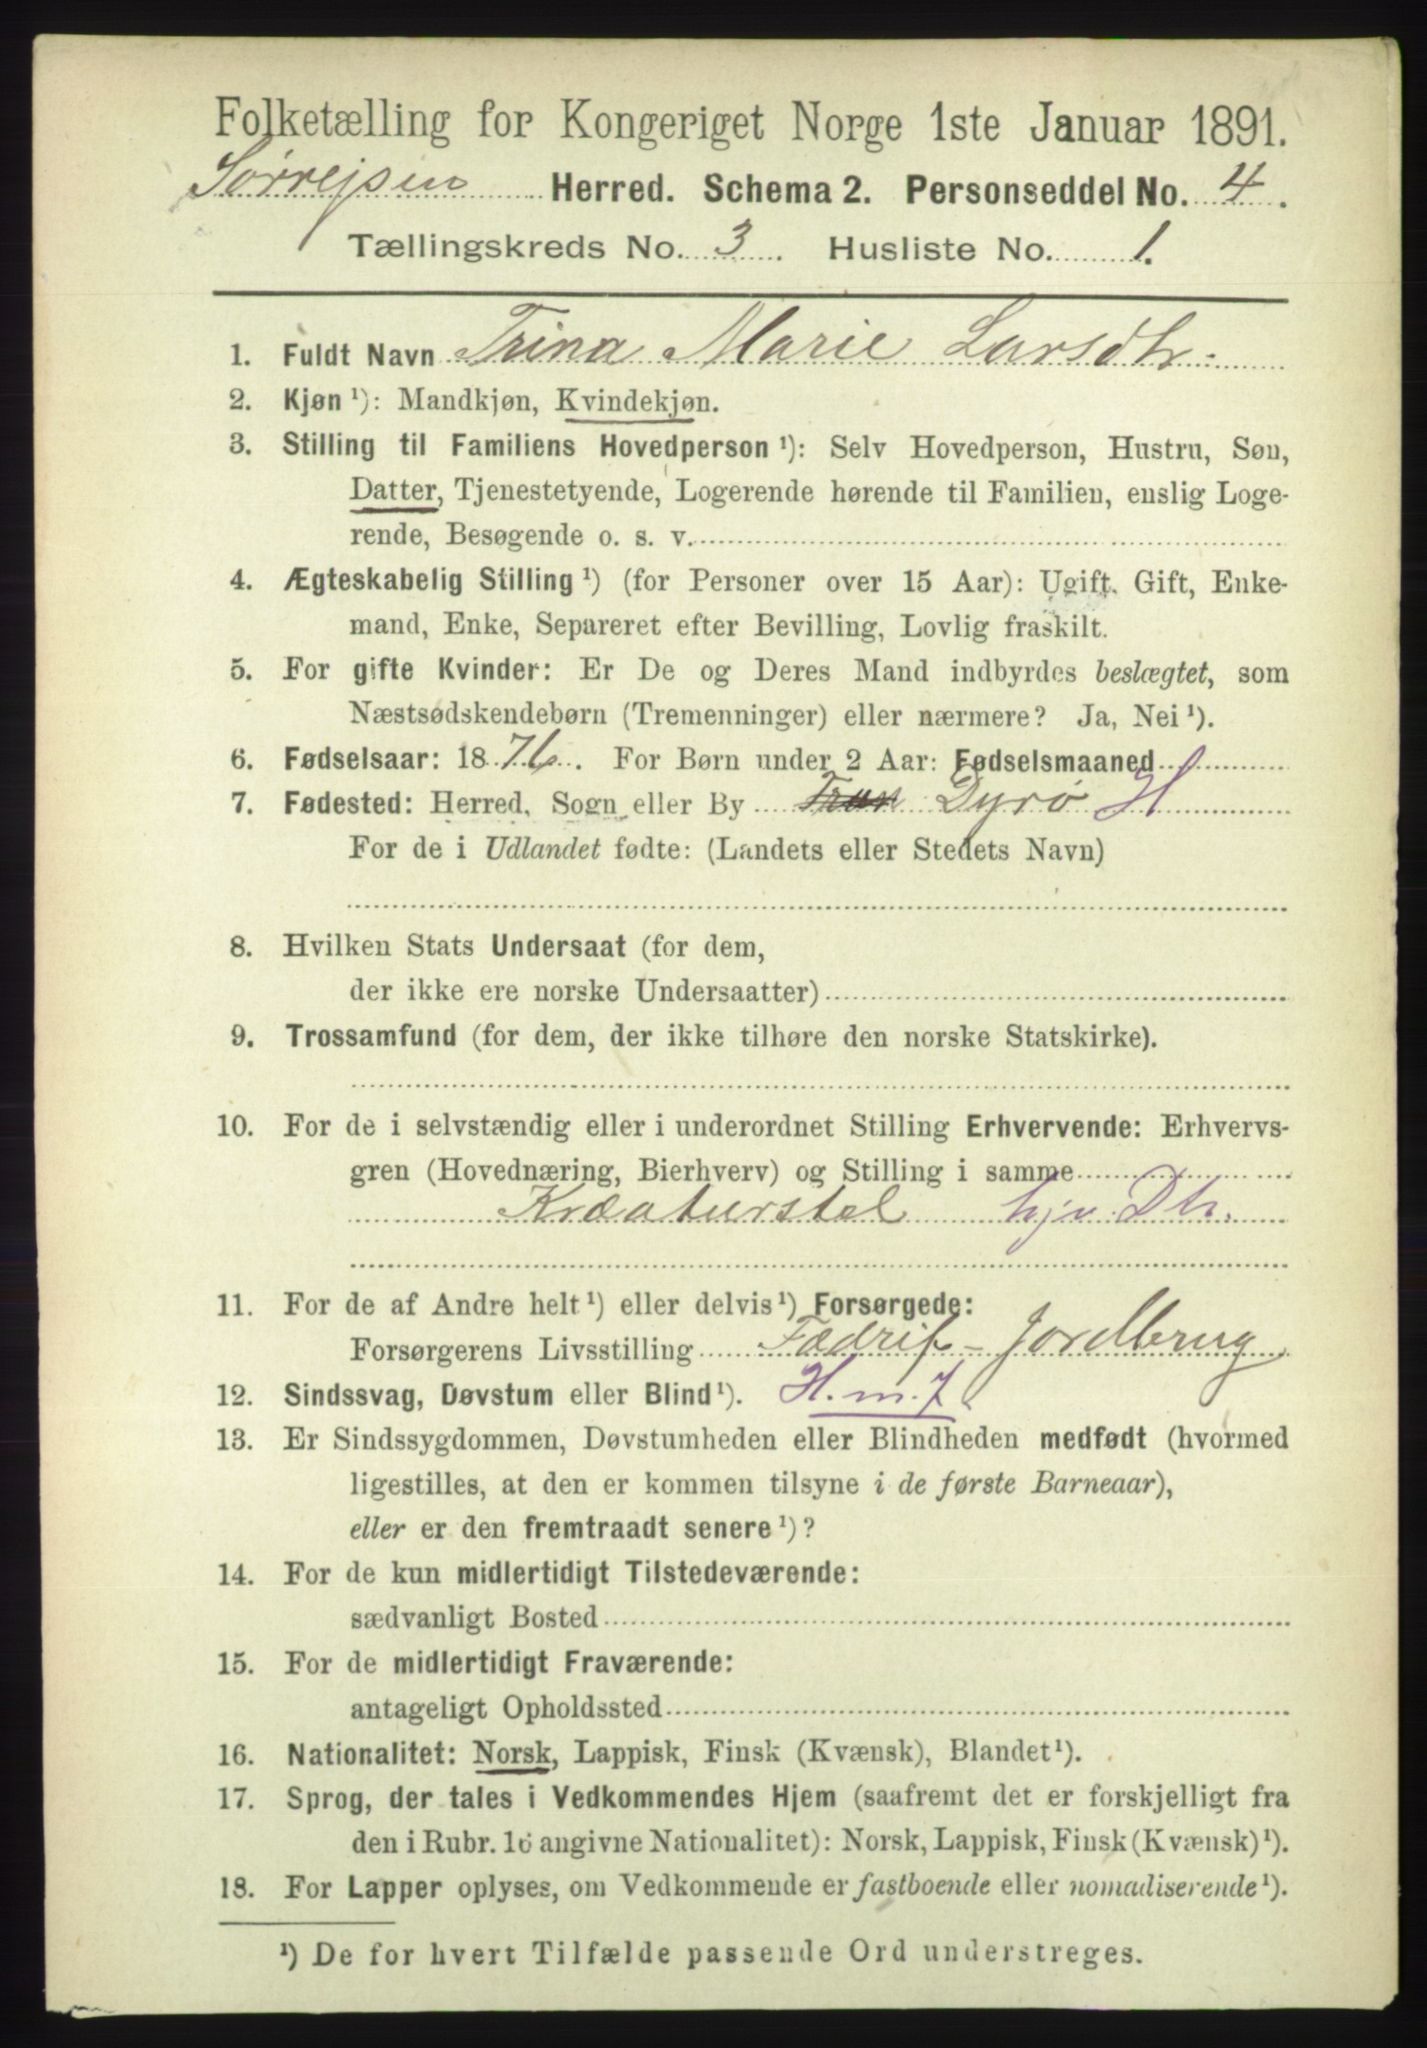 Folketælling for Kongeriget Norge 1ste Januar 1891.
Sørrejsen Herred. Schema 2. Personseddel No. 4.
Tællingskreds No. 3. Husliste No. 1.
1. Fuldt Navn Trina Marie Larsdtr.
2. Kjøn ¹): Mandkjøn, Kvindekjøn.
3. Stilling til Familiens Hovedperson ¹): Selv Hovedperson, Hustru, Søn,
Datter, Tjenestetyende, Logerende hørende til Familien, enslig Loge-
rende, Besøgende o. s. v.
4. Ægteskabelig Stilling ¹) (for Personer over 15 Aar): Ugift, Gift, Enke-
mand, Enke, Separeret efter Bevilling, Lovlig fraskilt.
5. For gifte Kvinder: Er De og Deres Mand indbyrdes beslægtet, som
Næstsødskendebørn (Tremenninger) eller nærmere? Ja, Nei ¹).
6. Fødselsaar: 1876. For Børn under 2 Aar: Fødselsmaaned
7. Fødested: Herred, Sogn eller By Tran Dyrø H
For de i Udlandet fødte: (Landets eller Stedets Navn)
8. Hvilken Stats Undersaat (for dem,
der ikke ere norske Undersaatter)
9. Trossamfund (for dem, der ikke tilhøre den norske Statskirke).
10. For de i selvstændig eller i underordnet Stilling Erhvervende: Erhvervs-
gren (Hovednæring, Bierhverv) og Stilling i samme
Kræaturstel hjv. Dtr.
11. For de af Andre helt ¹) eller delvis ¹) Forsørgede:
Forsørgerens Livsstilling Fædrift - Jordbrug
12. Sindssvag, Døvstum eller Blind ¹). H. m. J
13. Er Sindssygdommen, Døvstumheden eller Blindheden medfødt (hvormed
ligestilles, at den er kommen tilsyne i de første Barneaar),
eller er den fremtraadt senere ¹)?
14. For de kun midlertidigt Tilstedeværende:
sædvanligt Bosted
15. For de midlertidigt Fraværende:
antageligt Opholdssted
16. Nationalitet: Norsk, Lappisk, Finsk (Kvænsk), Blandet ¹).
17. Sprog, der tales i Vedkommendes Hjem (saafremt det er forskjelligt fra
den i Rubr. 16 angivne Nationalitet): Norsk, Lappisk, Finsk (Kvænsk) ¹).
18. For Lapper oplyses, om Vedkommende er fastboende eller nomadiserende ¹).
¹) De for hvert Tilfælde passende Ord understreges.